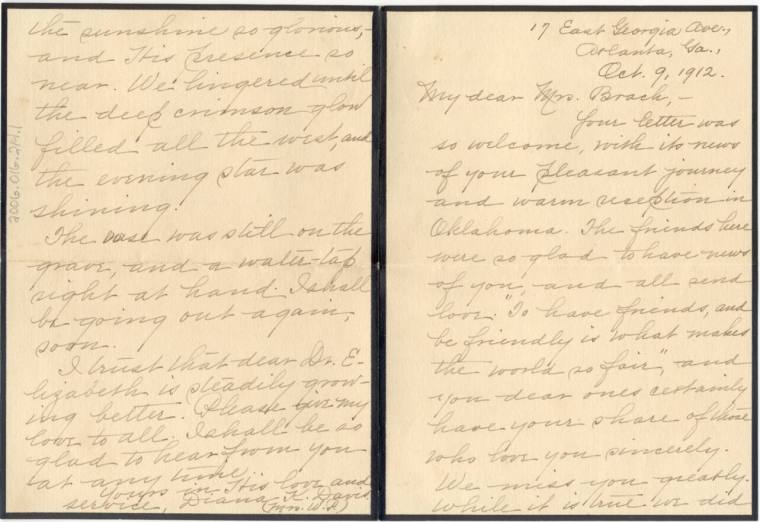 17 East Georgia Ave.,
Atlanta, Ga.,
Oct. 9, 1912.
My dear Mrs. Brach,-
Your letter was
so welcome, with its news
of your pleasant journey
and warm reception in
Oklahoma. The friends here
were so glad to have news
of you, and all send
love. "To have friends, and
be friendly is what makes
the world so fair", and
you dear ones certainly
have your share of those
who love you sincerely.
We miss you greatly.
While it is true we did
the sunshine so glorious,-
and His Presence so
near. We lingered until
the deep crimson glow
filled all the west, and
the evening star was
shining.
The vase was still on the
grave, and a water-tap
right at hand. I shall
be going out again,
soon.
I trust that dear Dr. E-
lizabeth is steadily grow-
ing better. Please give my
love to all. I shall be so
glad to hear from you
at any time.
Yours in His love and
service, Diana K. Davis
(Mrs. W. A.)
2006.016.24.1